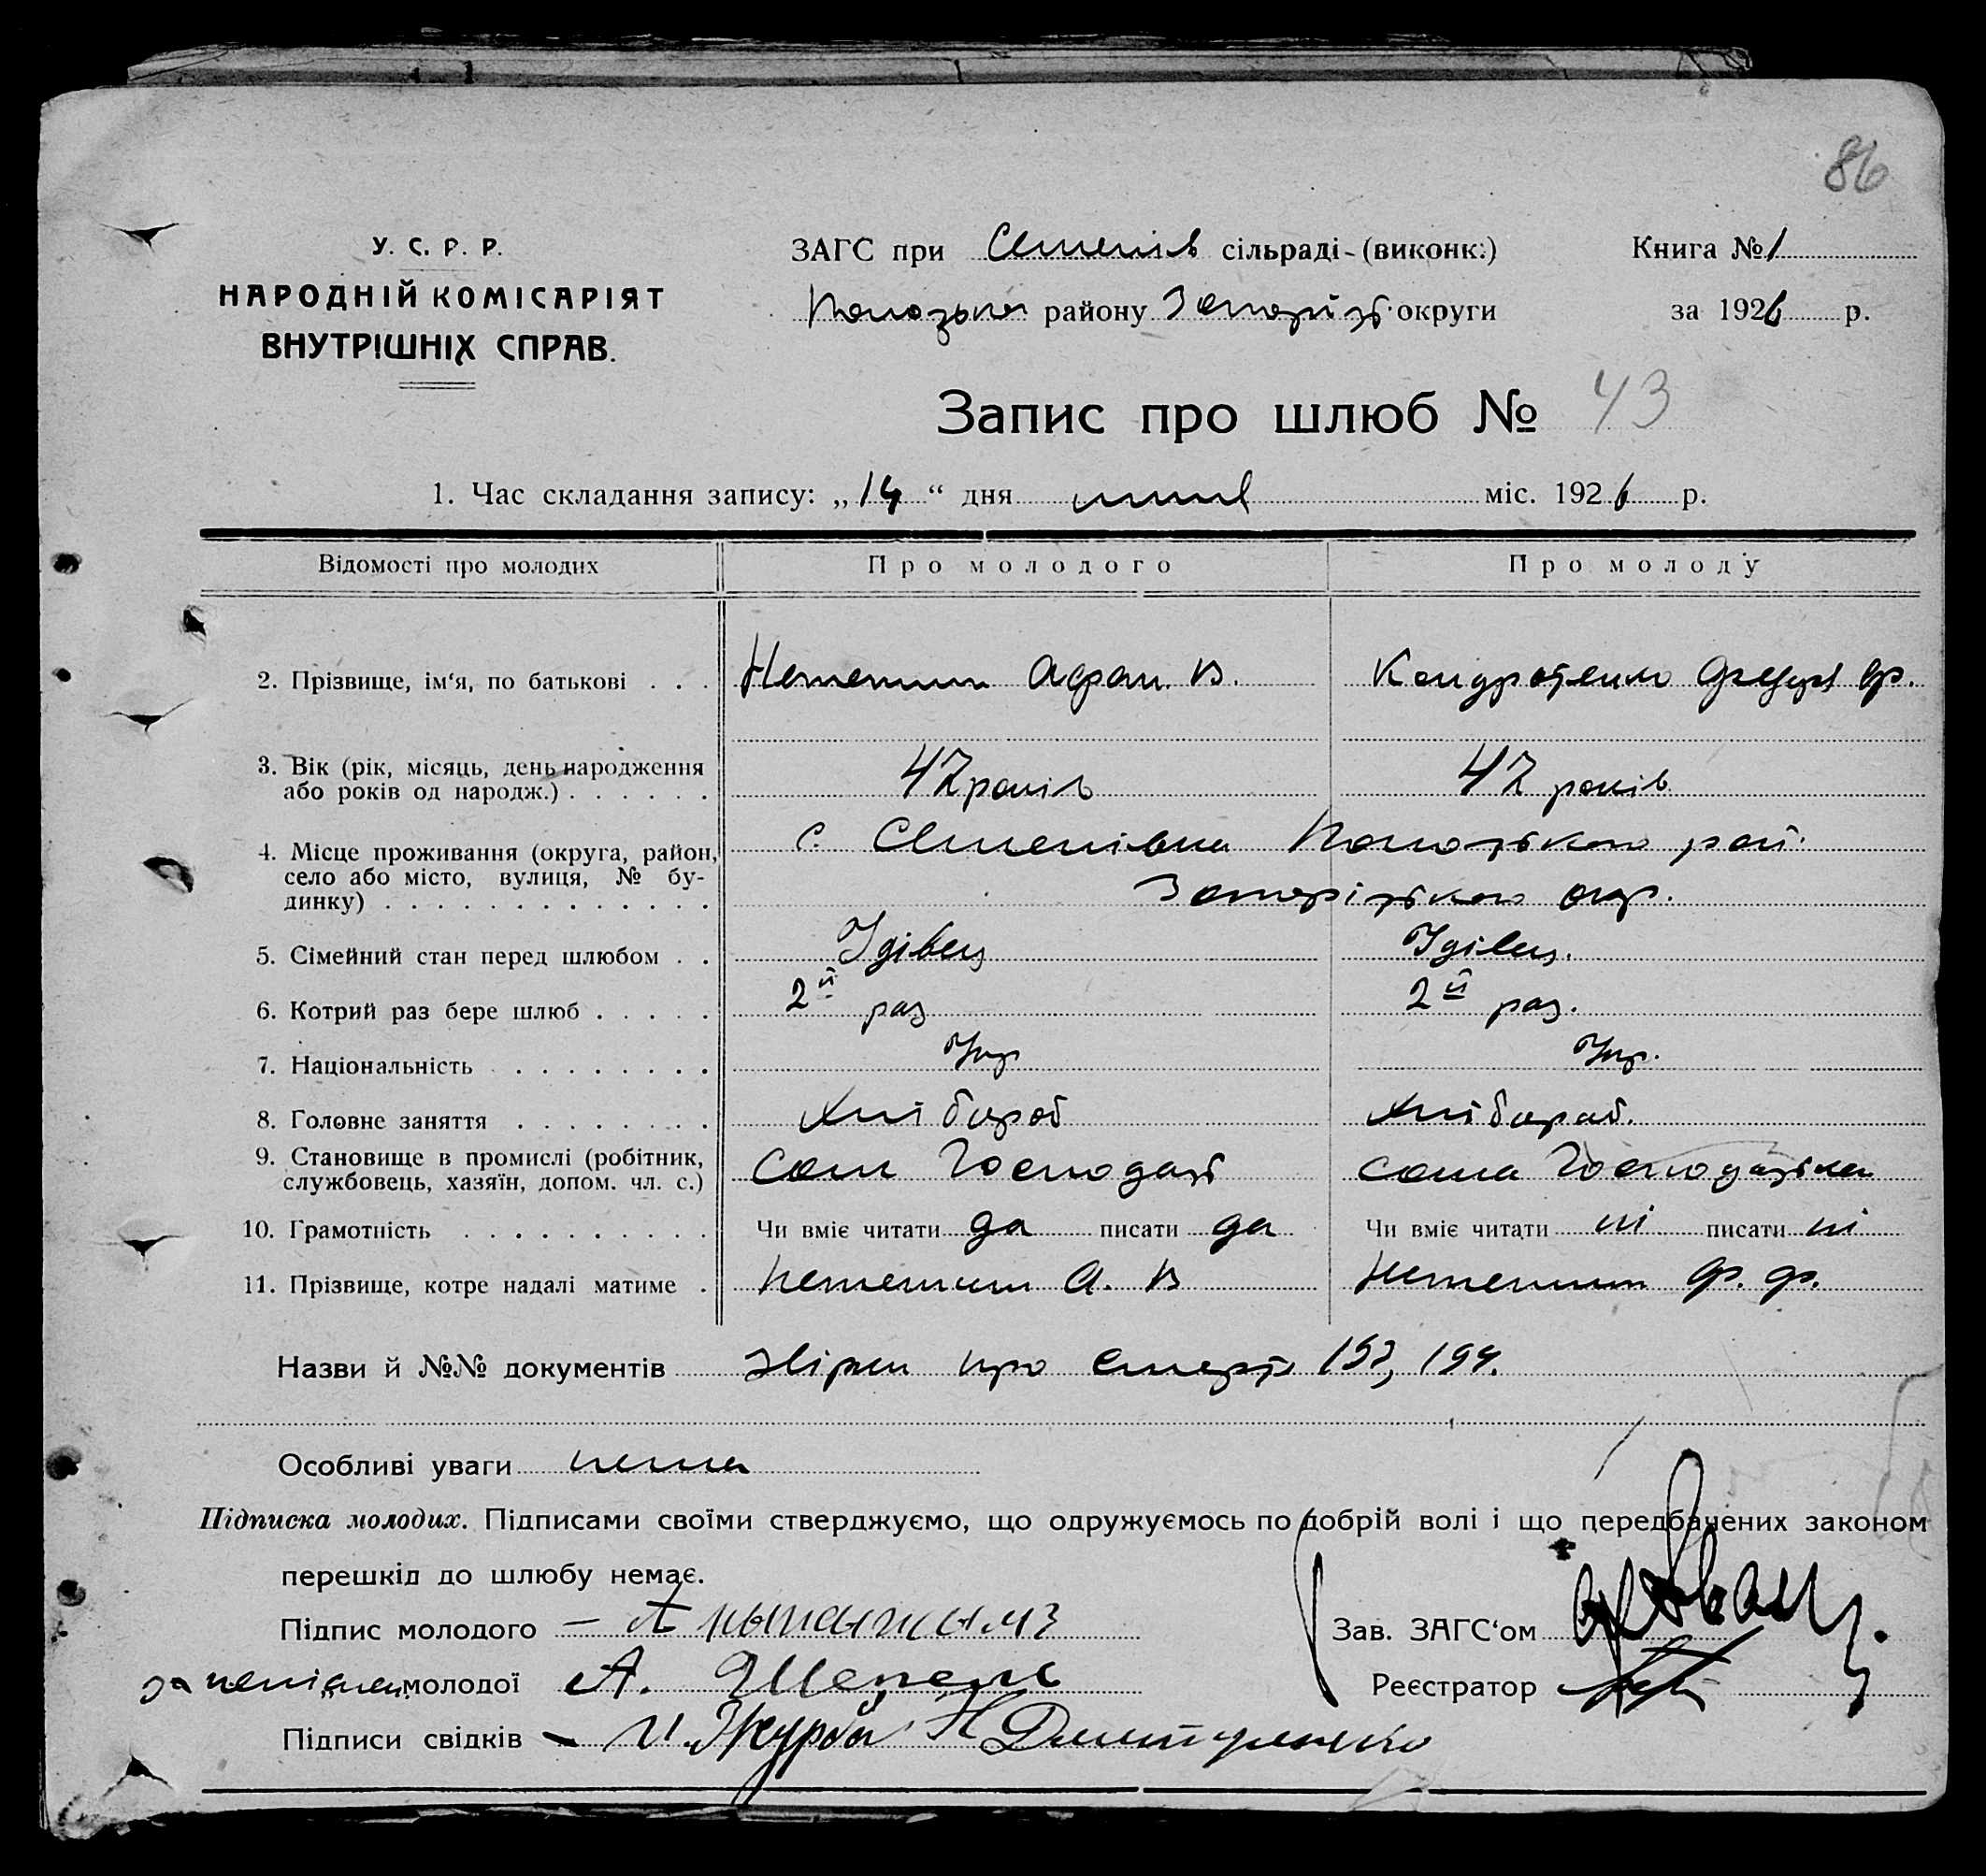 86
У. С. Р. Р.
НАРОДНІЙ КОМІСАРІЯТ
ВНУТРІШНІХ СПРАВ.
ЗАГС при Семенів сільраді (виконк.)
району Запорізь округи
Книга № 1
за 1926 р.
Запис про шлюб № 43
1. Час складання запису: „14“ дня міс. 1926 р.
Відомості про молодих
Про молодого
Про молоду
2. Прізвище, ім‘я, по батькові . . .
Афан. В.
Кондратенко
3. Вік (рік, місяць, день народження
або років од народж.) . . . . . .
47 років
47 років
4. Місце проживання (округа, район,
село або місто, вулиця, № бу-
динку) . . . . . . . . . . . . .
с. Семенівка рай.
Запорізького окр.
5. Сімейний стан перед шлюбом . .
Удівец
Удівец.
6. Котрий раз бере шлюб . . . . .
2й раз
2й раз.
7. Національність . . . . . . . .
Укр
Укр.
8. Головне заняття . . . . . . . .
Хлібороб
Хлібороб.
9. Становище в промислі (робітник,
службовець, хазяїн, допом. чл. с.)
Сам Господарь
Сама Господарька
10. Грамотність . . . . . . . . . .
Чи вміє читати да писати да
Чи вміє читати ні писати ні
11. Прізвище, котре надалі матиме .
А. В
Ф. Ф.
Назви й №№ документів про смерть
Особливі уваги нема
Підписка молодих. Підписами своїми стверджуємо, що одружуємось по добрій волі і що передбачених законом
перешкід до шлюбу немає.
Підпис молодого
Зав. ЗАГС‘ом
молодої А. Шепель
Реєстратор
Підписи свідків И. Журба Н Дмитренко